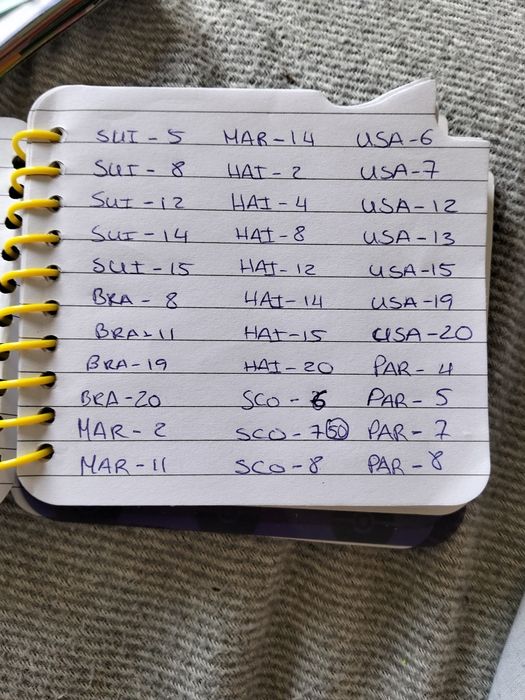 SUI - 5 MAR - 14 USA - 6
SUI - 8 HAI - 2 USA - 7
SUI - 12 HAI - 4 USA - 12
SUI - 14 HAI - 8 USA - 13
SUI - 15 HAI - 12 USA - 15
BRA - 8 HAI - 14 USA - 19
BRA - 11 HAI - 15 USA - 20
BRA - 19 HAI - 20 PAR - 4
BRA - 20 SCO - 6 PAR - 5
MAR - 2 SCO - 7 50 PAR - 7
MAR - 11 SCO - 8 PAR - 8